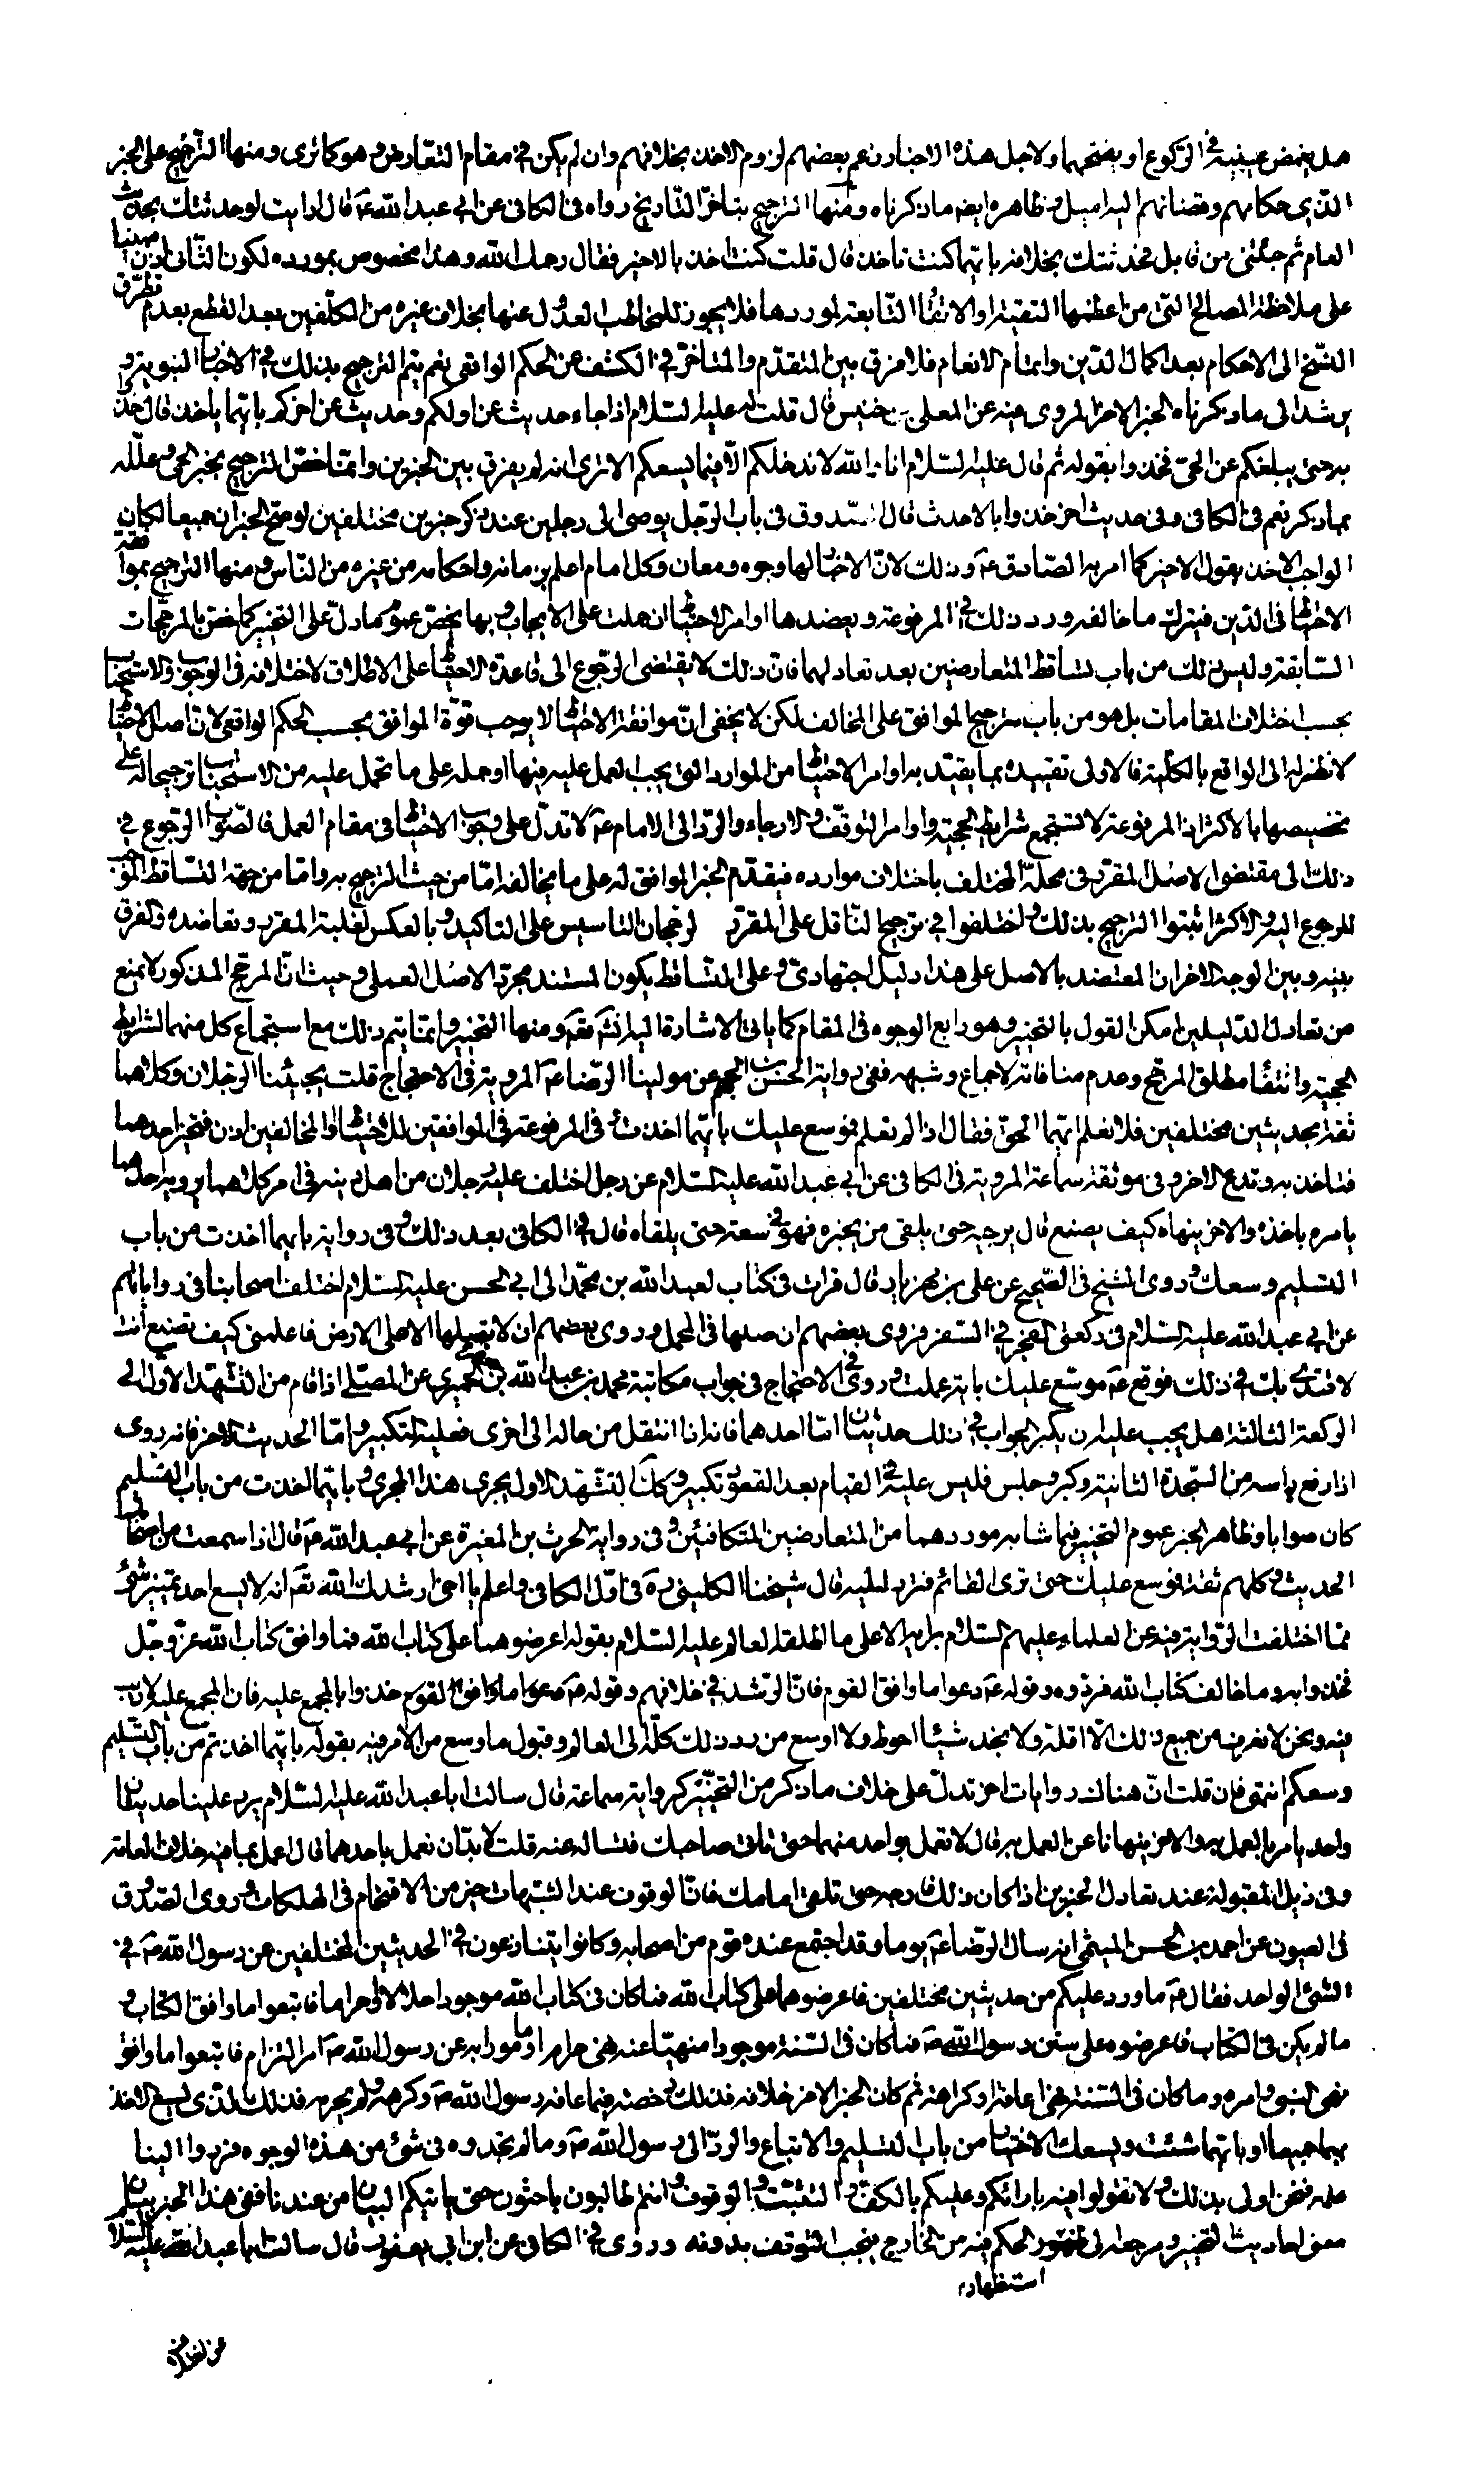 هل يغمض عينيه في الركوع او يفتحهما ولاجل هذه الاخبار زعم بعضهم لزوم الاخذ بخلافهم وان لم يكن في مقام التعارض وهو كما ترى ومنها الترجيح على الخبر
الذي حكامهم وقضاتهم اليه اميل وظاهره ايضا ما ذكرناه ومنها الترجيح بتاخر التاريخ رواه في الكافي عن ابي عبد الله ع قال ارايت لو حدثتك بحديث
العام ثم جئتني من قابل فحدثتك بخلافه بايهما كنت تاخذ قال قلت كنت اخذ بالاخير فقال رحمك الله وهذا مخصوص بمورده لكون الثاني اذن مبنيا
على ملاحظة المصالح التي من اعظمها التقية او الاتقاء التابعة لموردها فلا يجوز للمخاطب العدول عنها بخلاف غيره من المكلفين بعد القطع بعدم تطرق
النسخ الى الاحكام بعد اكمال الدين واتمام الانعام فلا فرق بين المتقدم والمتاخر في الكشف عن الحكم الواقعي نعم يتم الترجيح بذلك في الاخبار النبوية و
يرشد الى ما ذكرناه الخبر الاخر المروي فيه عن المعلى بن خنيس قال قلت له عليه السلام اذا جاء حديث عن اولكم وحديث عن اخركم بايهما ياخذ قال خذوا
به حتى يبلغكم عن الحي فخذوا بقوله ثم قال عليه السلام انا والله لا ندخلكم الا فيما يسعكم الا ترى انه لم يفرق بين الخبرين وانما خص الترجيح بخبر الحي وعلله
بما ذكر نعم في الكافي وفي حديث اخر خذوا بالاحدث قال الصدوق في باب الرجل يوصي الى رجلين عند ذكر خبرين مختلفين لو صح الخبران جميعا لكان
الواجب الاخذ بقول الاخير كما امر به الصادق ع وذلك لان الاخبار لها وجوه ومعان وكل امام اعلم بزمانه واحكامه من غيره من الناس ومنها الترجيح بموافقة
الاحتياط في الدين فيترك ما خالفه وورد ذلك في المرفوعة ويعضدها اوامر الاحتياط ان حملت على الايجاب وبها يخص عموم ما دل على التخيير كما خص بالمرجحات
السابقة وليس ذلك من باب تساقط المتعارضين بعد تعادلهما فان ذلك لا يقتضي الرجوع الى قاعدة الاحتياط على الاطلاق لاختلافه في الوجوب والاستحباب
بحسب اختلاف المقامات بل هو من باب ترجيح الموافق على المخالف لكن لا يخفى ان موافقة الاحتياط لا يوجب قوة الموافق بحسب الحكم الواقعي لان اصل الاحتياط
لا نظر له الى الواقع بالكلية فالاولى تقييده بما يقيد به اوامر الاحتياط من الموارد التي يجب العمل عليه فيها او حمله على ما تحمل عليه من الاستحباب ترجيحا له على
تخصيصها بالاكثر اذ المرفوعة لا تستجمع شرايط الحجية واوامر التوقف والارجاء والرد الى الامام ع لا تدل على وجوب الاحتياط في مقام العمل فالصواب الرجوع في
ذلك الى مقتضى الاصل المقرر في محله المختلف باختلاف موارده فيقدم الخبر الموافق له على ما يخالفه اما من حيث الترجيح به واما من جهة التساقط الموجب
للرجوع اليه والاكثر اثبتوا الترجيح بذلك واختلفوا في ترجيح الناقل على المقرر لرجحان التاسيس على التاكيد وبالعكس لغلبة المقرر وتعاضده والفرق
بينه وبين الوجه الاخر ان المعتضد بالاصل على هذا دليل اجتهادي وعلى التساقط يكون المستند مجرد الاصل العملي وحيث ان المرجح المذكور لا يمنع
من تعادل الدليلين امكن القول بالتخيير وهو رابع الوجوه في المقام كما ياتي الاشارة اليه انش تع ومنها التخيير وانما يتم ذلك مع استجماع كل منهما لشرايط
الحجية وانتفاء مطلق المرجح وعدم منافاته لاجماع وشبهه ففي رواية الحسن بن الجهم عن مولينا الرضا ع المروية في الاحتجاج قلت يجيئنا الرجلان وكلاهما
ثقة بحديثين مختلفين فلا نعلم ايهما الحق فقال اذا لم تعلم فموسع عليك بايهما اخذت وفي المرفوعة في الموافقين للاحتياط او المخالفين اذن فتخير احدهما
فتاخذ به وتدع الاخر وفي موثقة سماعة المروية في الكافي عن ابي عبد الله عليه السلام عن رجل اختلف عليه رجلان من اهل دينه في امر كلاهما يرويه احدهما
يامره باخذه والاخر ينهاه كيف يصنع قال يرجيه حتى يلقى من يخبره فهو في سعة حتى يلقاه قال في الكافي بعد ذلك وفي رواية بايهما اخذت من باب
التسليم وسعك وروى الشيخ في الصحيح عن علي بن مهزيار قال قرات في كتاب لعبد الله بن محمد الى ابي الحسن عليه السلام اختلف اصحابنا في رواياتهم
عن ابي عبد الله عليه السلام في ركعتي الفجر في السفر فروى بعضهم ان صلها في المحمل وروى بعضهم ان لا تصلها الا على الارض فاعلمني كيف تصنع انت
لاقتدي بك في ذلك فوقع ع موسع عليك باية عملت وروى في الاحتجاج في جواب مكاتبة محمد بن عبد الله بن جعفر الحميري عن المصلي اذا قام من التشهد الاول الى
الركعة الثالثة هل يجب عليه ان يكبر الجواب في ذلك حديثان اما احدهما فانه اذا انتقل من حالة الى اخرى فعليه التكبير واما الحديث الاخر فانه روى
اذا رفع راسه من السجدة الثانية وكبر وجلس فليس عليه في القيام بعد القعود تكبير وكك التشهد الاول يجري هذا المجرى وبايهما اخذت من باب التسليم
كان صوابا وظاهر الخبر عموم التخيير فيما شابه موردهما من المتعارضين المتكافئين وفي رواية الحرث بن المغيرة عن ابي عبد الله ع قال اذا سمعت من اصحابك
الحديث وكلهم ثقة فموسع عليك حتى ترى القائم فترد اليه قال شيخنا الكليني ره في اول الكافي واعلم يا اخي ارشدك الله تع انه لا يسع احد تمييز شيء
مما اختلفت الرواية فيه عن العلماء عليهم السلام برايه الا على ما اطلقه العالم عليه السلام بقوله اعرضوهما على كتاب الله فما وافق كتاب الله عز وجل
فخذوا به وما خالف كتاب الله فردوه وقوله ع دعوا ما وافق القوم فان الرشد في خلافهم وقوله ع خذوا بالمجمع عليه فان المجمع عليه لا ريب
فيه ونحن لا نعرف من جميع ذلك الا اقله ولا نجد شيئا احوط ولا اوسع من رد ذلك كله الى العالم وقبول ما وسع من الامر فيه بقوله بايهما اخذتم من باب التسليم
وسعكم انتهى فان قلت ان هناك روايات اخر تدل على خلاف ما ذكر من التخيير كرواية سماعة قال سالت ابا عبد الله عليه السلام يرد علينا حديثان
واحد يامر بالعمل به والاخر ينهانا عن العمل به قال لا تعمل بواحد منهما حتى تاتي صاحبك فتساله عنه قلت لا بد ان نعمل باحدهما قال اعمل بما فيه خلاف العامة
وفي ذيل المقبولة عند تعادل الخبرين اذا كان ذلك فارجه حتى تلقى امامك فان الوقوف عند الشبهات خير من الاقتحام في الهلكات وروى الصدوق
في العيون عن احمد بن الحسن الميثمي انه سال الرضا ع يوما وقد اجتمع عنده قوم من اصحابه وكانوا يتنازعون في الحديثين المختلفين عن رسول الله ص في
الشئ الواحد فقال ع ما ورد عليكم من حديثين مختلفين فاعرضوهما على كتاب الله فما كان في كتاب الله موجودا حلالا او حراما فاتبعوا ما وافق الكتاب و
ما لم يكن في الكتاب فاعرضوه على سنن رسول الله ص فما كان في السنة موجودا منهيا عنه نهي حرام او مامورا به عن رسول الله ص امر الزام فاتبعوا ما وافق
نهي النبي وامره وما كان في السنة نهي اعافة او كراهة ثم كان الخبر الاخر خلافه فذلك رخصة فيما عافه رسول الله ص وكرهه ولم يحرمه فذلك الذي يسع الاخذ
بهما جميعا او بايهما شئت ويسعك الاختيار من باب التسليم والاتباع والرد الى رسول الله ص وما لم تجدوه في شئ من هذه الوجوه فردوا الينا
علمه فنحن اولى بذلك ولا تقولوا فيه بارائكم وعليكم بالكف والتثبت والوقوف وانتم طالبون باحثون حتى ياتيكم البيان من عندنا ففي هذا الخبر بيان
معنى احاديث التخيير ومرجعه الى ظهور الحكم فيه من الخارج فيجب التوقف بدونه وروى في الكافي عن ابن ابي يعفور قال سالت ابا عبد الله عليه السلام
استظهار
عن اختلاف